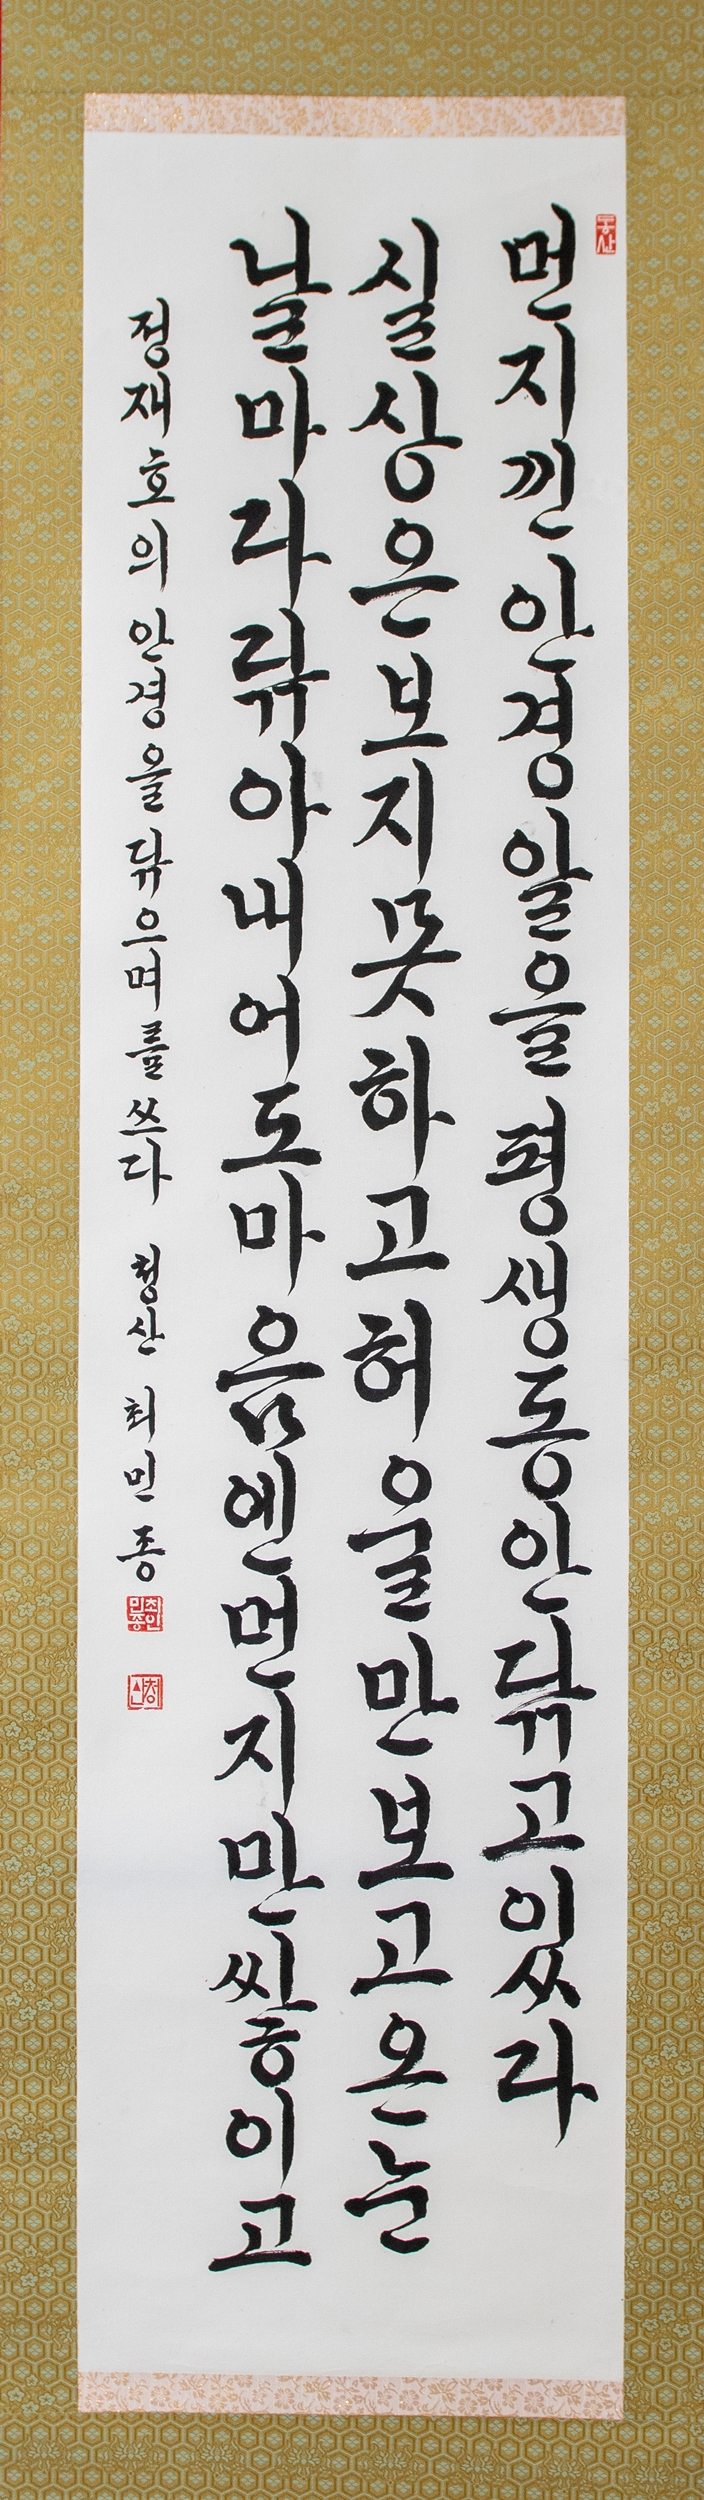 먼지낀안경알을평생동안닦고있다
실상은보지못하고허울만보고온눈
날마다닦아내어도마음엔먼지만쌓이고
정재호의 안경을 닦으며를 쓰다 청산 최민종
최민종인
청산